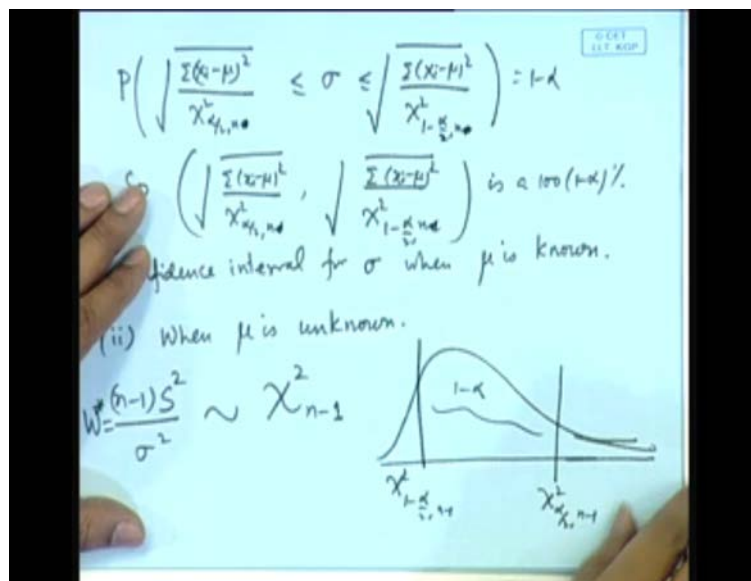 P(√(Σ(xi-μ)²/χ²α/2,n) ≤ σ ≤ √(Σ(xi-μ)²/χ²1-α/2,n)) = 1-α
So (√(Σ(xi-μ)²/χ²α/2,n), √(Σ(xi-μ)²/χ²1-α/2,n)) is a 100(1-α)%
fidence interval for σ when μ is known.
(ii) When μ is unknown.
W* = (n-1)S²/σ² ~ χ²n-1
1-α
χ²1-α/2,n-1
χ²α/2,n-1